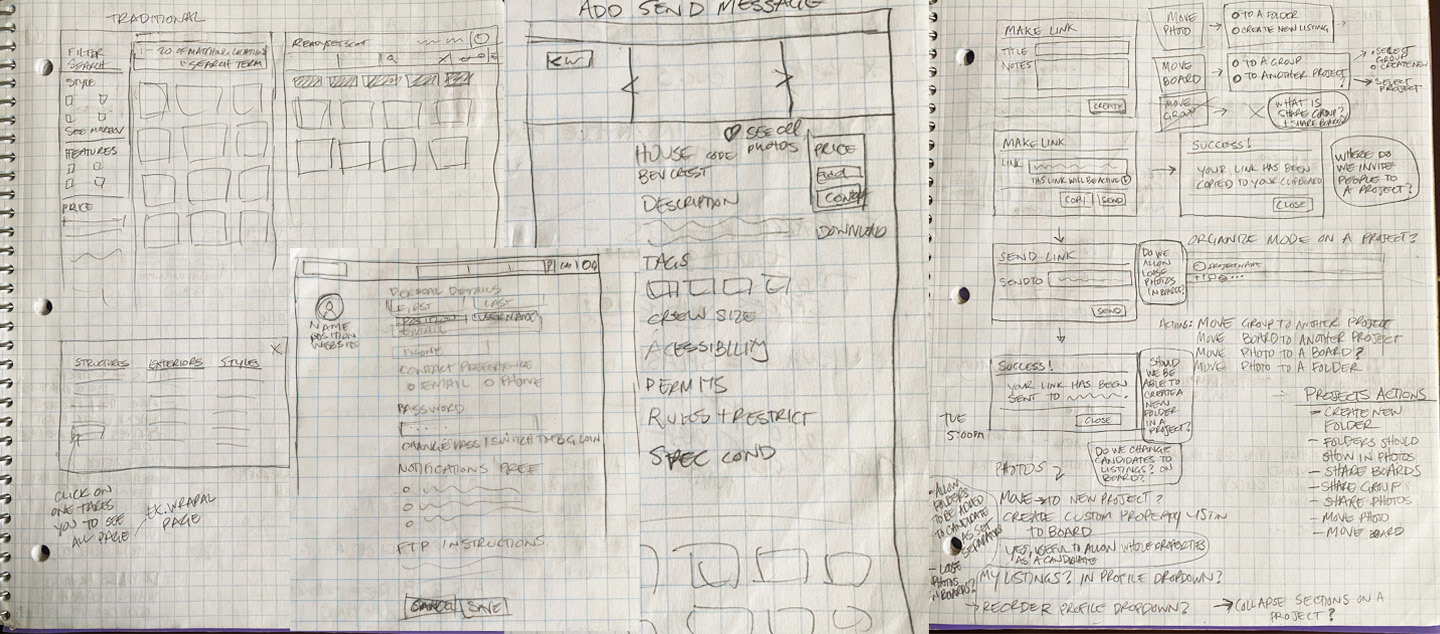 TRADITIONAL
FILTER
SEARCH
STYLE
FEATURES
PRICE
1 - 20 OF MATCHING LOCATIONS
"SEARCH TERM"
STRUCTURES
EXTERIORS
STYLES
X
CLICK ON
ONE TAKES
YOU TO SEE
ALL PAGE
EX. WRAPAL
PAGE
ADD SEND MESSAGE
KW
SEE All
PHOTOS
HOUSE CODE
BEV CREST
DESCRIPTION
PRICE
DOWNLOAD
TAGS
CREW SIZE
ACESSIBILITY
PERMITS
RULES + RESTRICT
SPEC COND
NAME
POSITION
WEBSITE
PERSONAL DETAILS
FIRST
LAST
POSITION
USERNAME
EMAIL
PHONE
CONTACT PREFERENCE
O EMAIL O PHONE
PASSWORD
NOTIFICATIONS PREF
FTP INSTRUCTIONS
CANCEL SAVE
MAKE LINK
TITLE
NOTES
CREATE
MOVE
PHOTO
O TO A FOLDER
O CREATE NEW LISTING
MOVE
BOARD
O TO A GROUP
O TO ANOTHER PROJECT
?
SELECT
GROUP
CREATE NEW
SELECT
PROJECT
MOVE
GROUP
X
WHAT IS
SHARE GROUP?
+ SHARE BOARD?
MAKE LINK
LINK
THIS LINK WILL BE ACTIVE
COPY SEND
SUCCESS!
YOUR LINK HAS BEEN
COPIED TO YOUR CLIPBOARD
CLOSE
WHERE DO
WE INVITE
PEOPLE TO
A PROJECT?
SEND LINK
SEND TO
SEND
DO WE
ALLOW
LOOSE
PHOTOS
IN BOARDS?
ORGANIZE MODE ON A PROJECT?
PROJECT NAME
ACTIONS: MOVE GROUP TO ANOTHER PROJECT
MOVE BOARD TO ANOTHER PROJECT
MOVE PHOTO TO A BOARD?
MOVE PHOTO TO A FOLDER
SUCCESS!
YOUR LINK HAS BEEN
SENT TO
CLOSE
SHOULD
WE BE
ABLE TO
CREATE A
NEW
FOLDER
IN A
PROJECT?
TUE
5:00PM
PROJECTS ACTIONS
- CREATE NEW
FOLDER
- FOLDERS SHOULD
SHOW IN PHOTOS
- SHARE BOARDS
- SHARE GROUP
- SHARE PHOTOS
- MOVE PHOTO
- MOVE BOARD
DO WE CHANGE
CANDIDATES TO
LISTINGS? ON
BOARD?
PHOTOS
MOVE → TO NEW PROJECT?
CREATE CUSTOM PROPERTY LISTIN
TO BOARD
YES, USEFUL TO ALLOW WHOLE PROPERTIES
AS A CANDIDATE
- ALLOW
FOLDERS
TO BE ADDED
TO CANDIDATE
AS SET
SEPARATORS
- LOOSE
PHOTOS
IN BOARDS?
MY LISTINGS? IN PROFILE DROPDOWN?
→ REORDER PROFILE DROPDOWN?
→ COLLAPSE SECTIONS ON A
PROJECT?